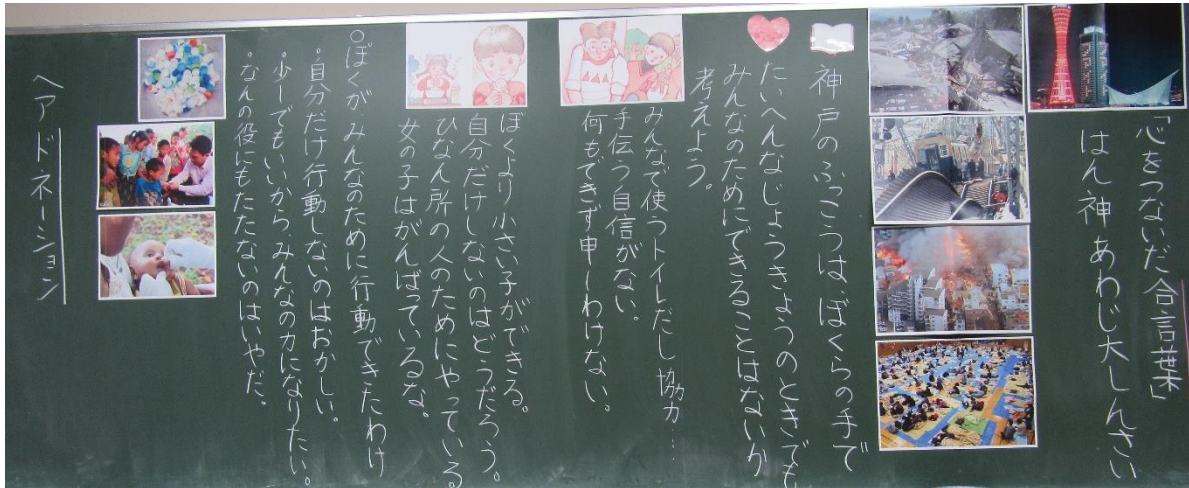 「心をつないだ合言葉」
はん神あわじ大しんさい
神戸のふっこうは、ぼくらの手で
たいへんなじょうきょうのときでも
みんなのためにできることはないか
考えよう。
みんなで使うトイレだし協力…
手伝う自信がない。
何もできず申しわけない。
ぼくより小さい子ができる。
自分だけしないのはどうだろう。
ひなん所の人のためにやっている
女の子はがんばっているな。
○ぼくが、みんなのために行動できたわけ
・自分だけ行動しないのはおかしい。
・少しでもいいから、みんなの力になりたい。
・なんの役にもたたないのはいやだ。
ヘアドネーション